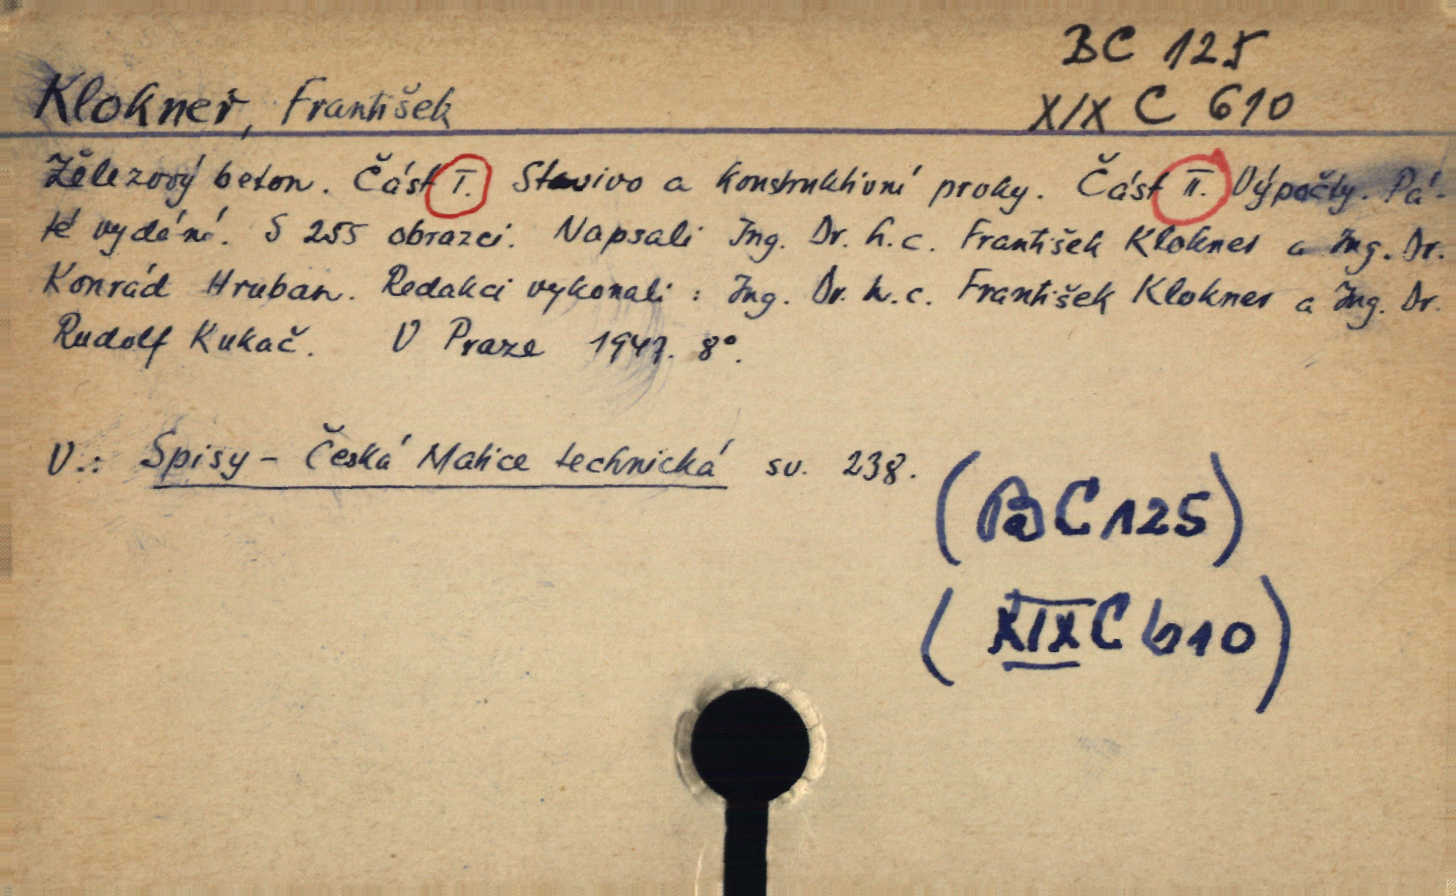 BC 125
Klokner, František
XIX C 610
Želězový beton. Část I. Stavivo a konstruktivní prvky. Část II. Výpočty. Pá-
té vydání. S 255 obrazci. Napsali Ing. Dr. h.c. František Klokner a Ing. Dr.
Konrád Hruban. Redakci vykonali: Ing. Dr. h.c. František Klokner a Ing. Dr.
Rudolf Kukač. V Praze 1947. 8°.
V.: Spisy - Česká Matice technická sv. 238.
(BC 125)
(XIX C 610)